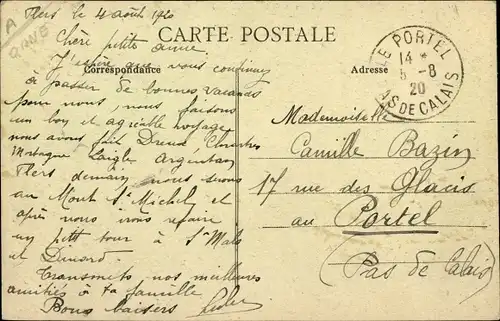 Flers le 4 août 1920
CARTE POSTALE
Chère petite amie
Correspondance
Adresse
J'espère que vous continuez
à passer de bonnes vacances
pour nous, nous faisons
un bon et agréable voyage
nous avons fait Dreux, Chartres
Mortagne Laigle Argentan
Flers demain nous serons
au Mont St Michel et
après nous irons refaire
un petit tour à St Malo
et Dinard.
Transmets nos meilleures
amitiés à ta famille
Bons baisers
LE PORTEL
14 *
5 -8
20
PAS DE CALAIS
Mademoiselle
Camille Bazin
17 rue des Glacis
au Portel
(Pas de Calais)